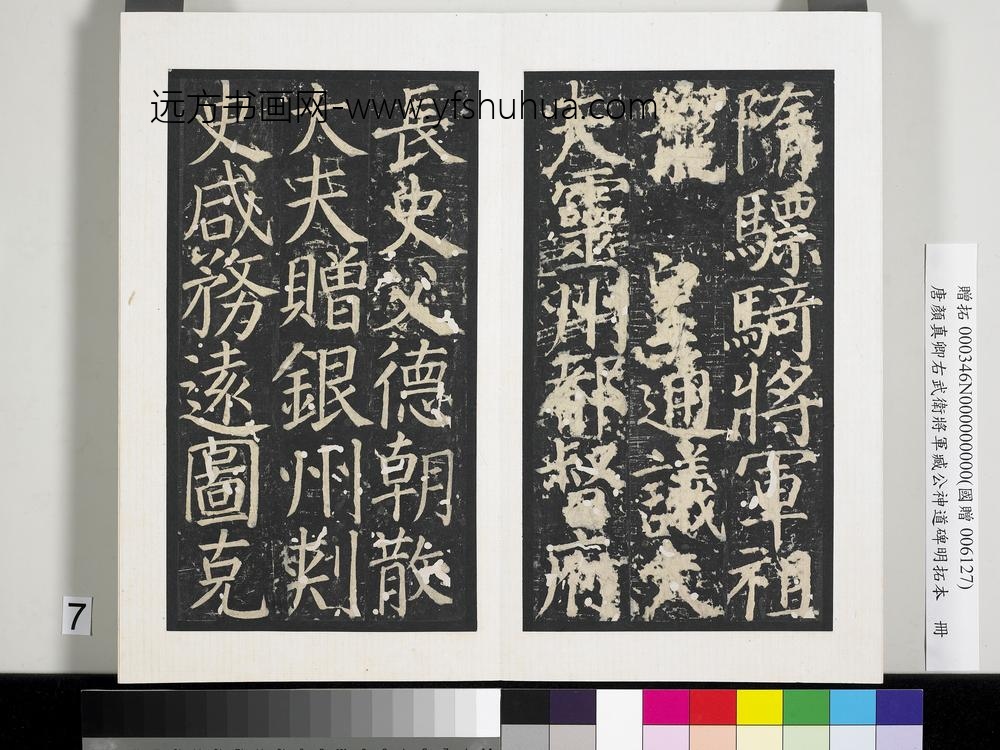 远方书画网-www.yfshuhua.com
隋驃騎將軍祖
寵 皇通議大
夫靈州都督府
長史父德朝散
大夫贈銀州刾
史咸務遠圖克
7
贈拓 000346N000000000(國贈 006127)
唐顏真卿右武衛將軍臧公神道碑明拓本 冊